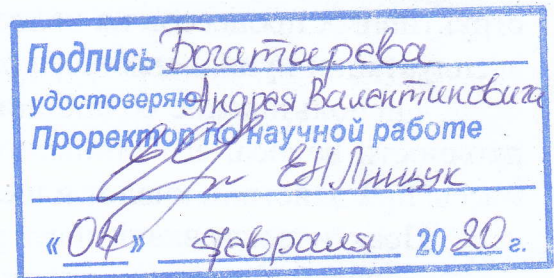 Подпись Богатырева
удостоверяю Андрея Валентиновича
Проректор по научной работе
«04» февраля 2020 г.